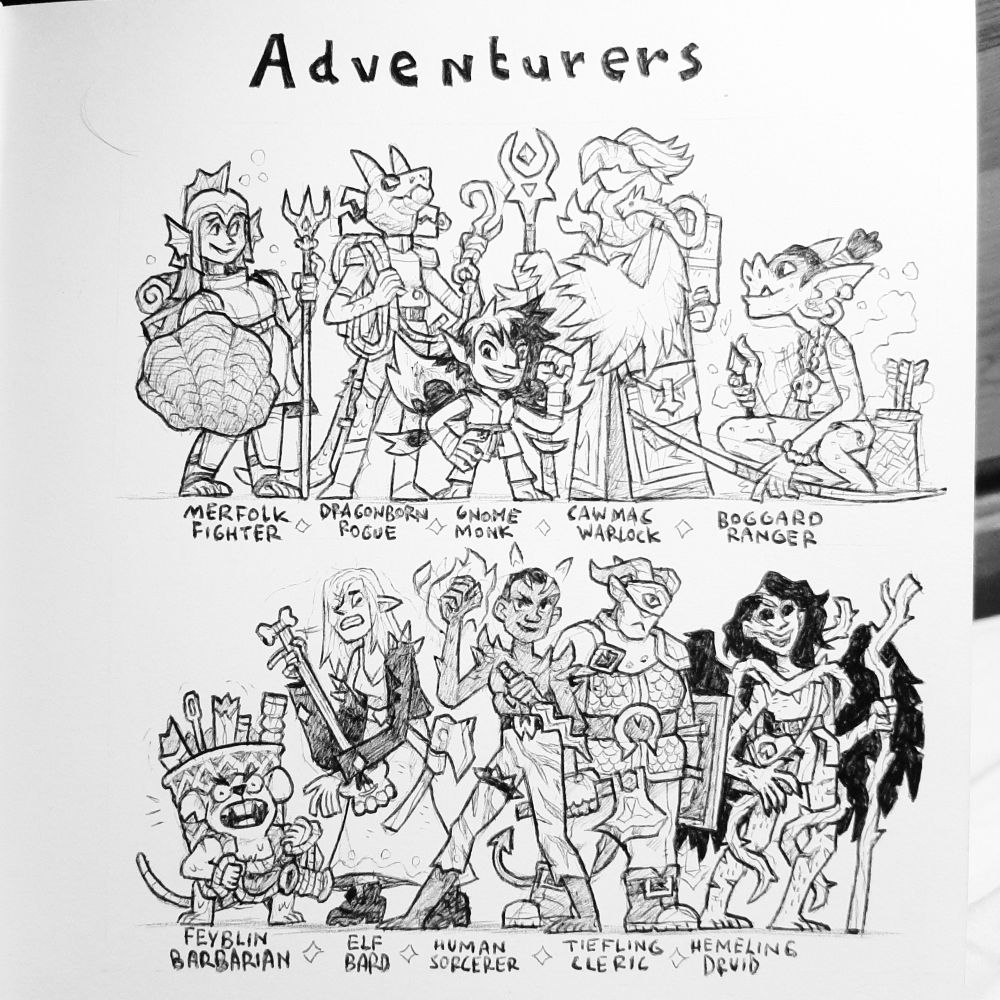 Adventurers
MERFOLK FIGHTER
DRAGONBORN ROGUE
GNOME MONK
CAWMAC WARLOCK
BOGGARD RANGER
FEYBLIN BARBARIAN
ELF BARD
HUMAN SORCERER
TIEFLING CLERIC
HEMELING DRUID